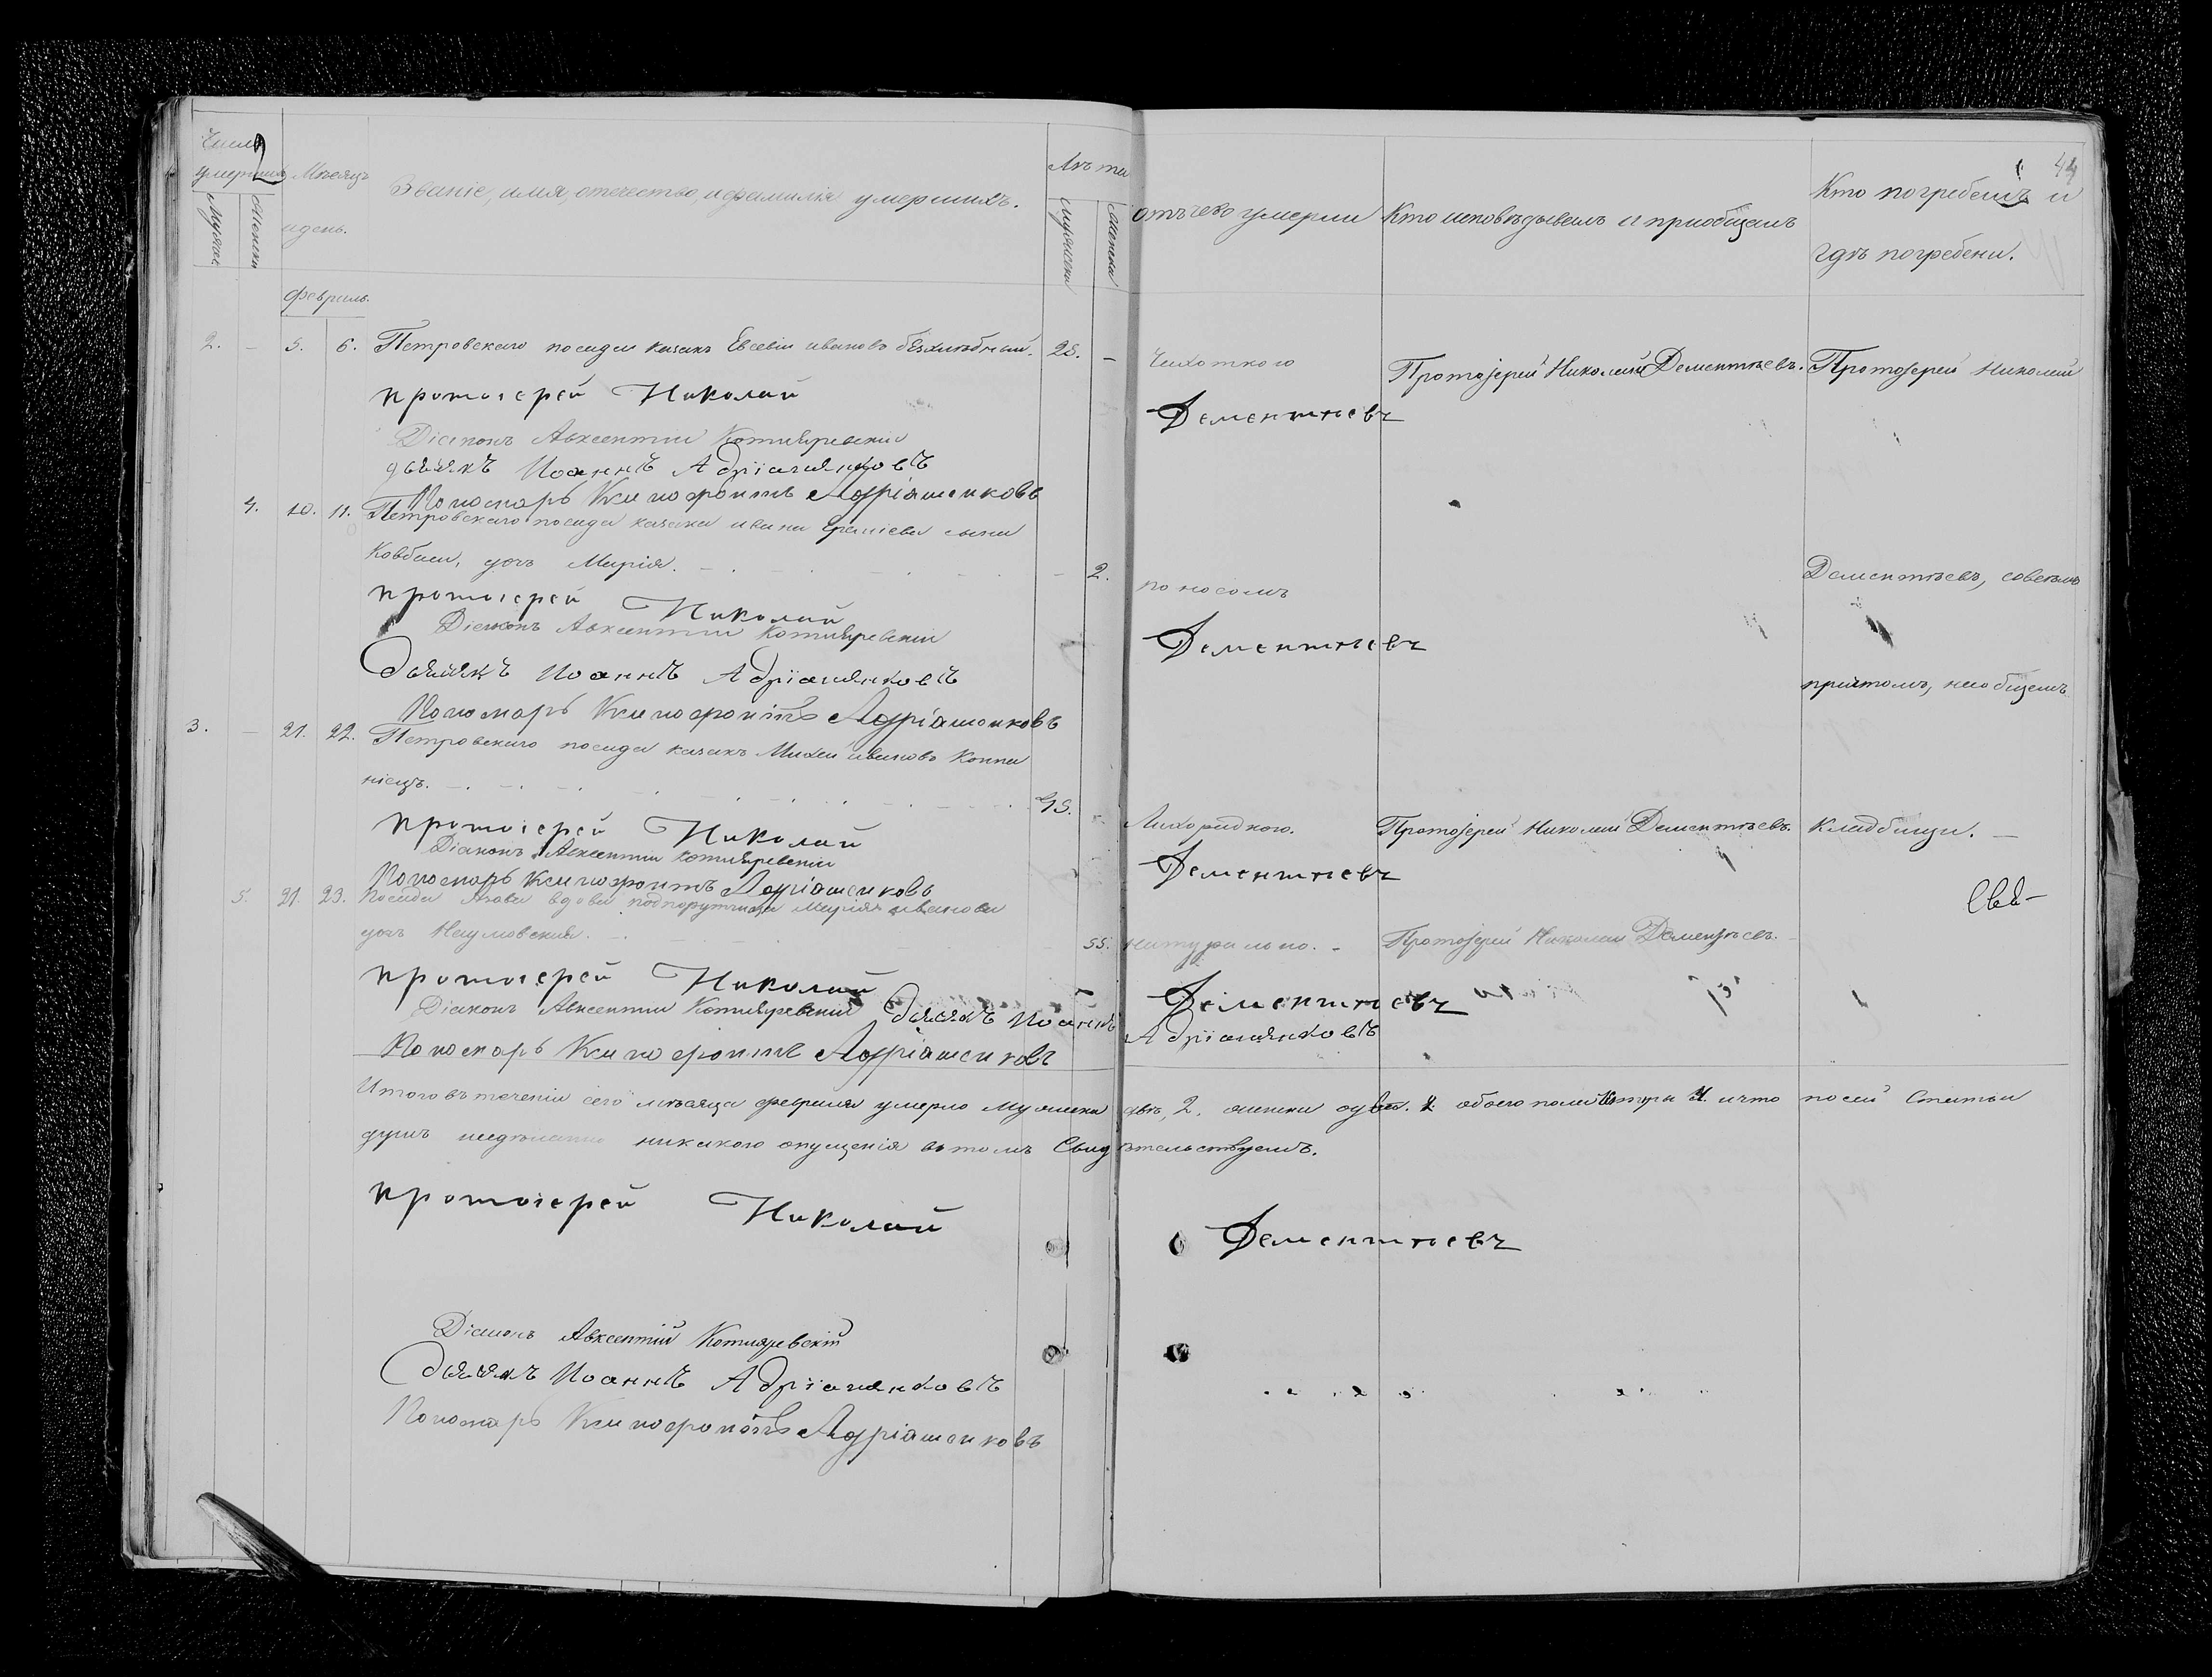 Числ
умершихъ Мѣсяцъ
и день.
Званіе, имя, отечество, и фамилія умершихъ.
Лѣта
Мужеска Женска
Мужеска Женска
отъ чего умерли
Кто исповѣдывалъ и пріобщалъ
Кто погребалъ и
гдѣ погребены.
44
Февраль.
2. – 5. 6. Петровскаго посада казакъ Евсевій Ивановъ 25. – Чахоткою Протоіерей Николай Дементьевъ. Протоіерей Николай
протоіерей Николай Дементьевъ
Діаконъ Авксентій Котляревскій
дьячокъ Иоаннъ Адріашенковъ
Пономарь Ксенофонтъ Адріашенковъ
4. 10. 11. Петровскаго посада казака Ивана сына
Ковбаси, дочь Марія. – 2. поносомъ Дементьевъ, со всѣмъ
протоіерей Николай Дементьевъ
Діаконъ Авксентій Котляревскій
дьячокъ Иоаннъ Адріашенковъ
причтомъ, на общемъ
Пономарь Ксенофонтъ Адріашенковъ
3. – 21. 22. Петровскаго посада казакъ Михей Ивановъ
нецъ. 45. Лихорадкою. Протоіерей Николай Дементьевъ. Кладбищи. –
протоіерей Николай Дементьевъ
Діаконъ Авксентій Котляревскій
Пономарь Ксенофонтъ Адріашенковъ
5. 21. 23. Посада вдова подпоручица Марія Иванова
дочь Наумовская. 55. натурально. – Протоіерей Николай Дементьевъ.
протоіерей Николай Дементьевъ
Діаконъ Авксентій Котляревскій дьячокъ Иоаннъ Адріашенковъ
Пономарь Ксенофонтъ Адріашенковъ
Итого въ теченіи сего мѣсяца февраля умерло мужеска два, 2. женска обоего пола и что по сей Статьи
душъ никакого опущенія въ томъ Свидѣтельствуемъ.
протоіерей Николай Дементьевъ
Діаконъ Авксентій Котляревскій
дьячокъ Иоаннъ Адріашенковъ
Пономарь Ксенофонтъ Адріашенковъ